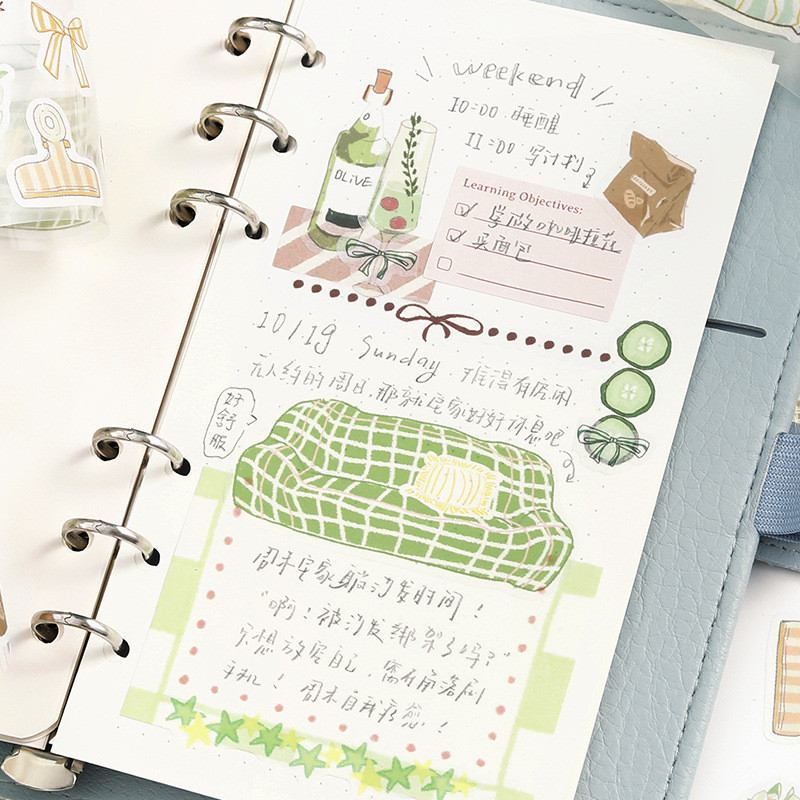 weekend
10:00 睡醒
11:00 写计划
OLIVE
Learning Objectives:
学做咖啡拉花
买面包
10/19 Sunday. 难得有空闲
无人约的周日,那就宅家好好休息吧
好舒服
周末宅家躺沙发时间!
"啊!被沙发绑架了吗?"
只想放空自己,窝在角落刷
手机! 周末自我疗愈!